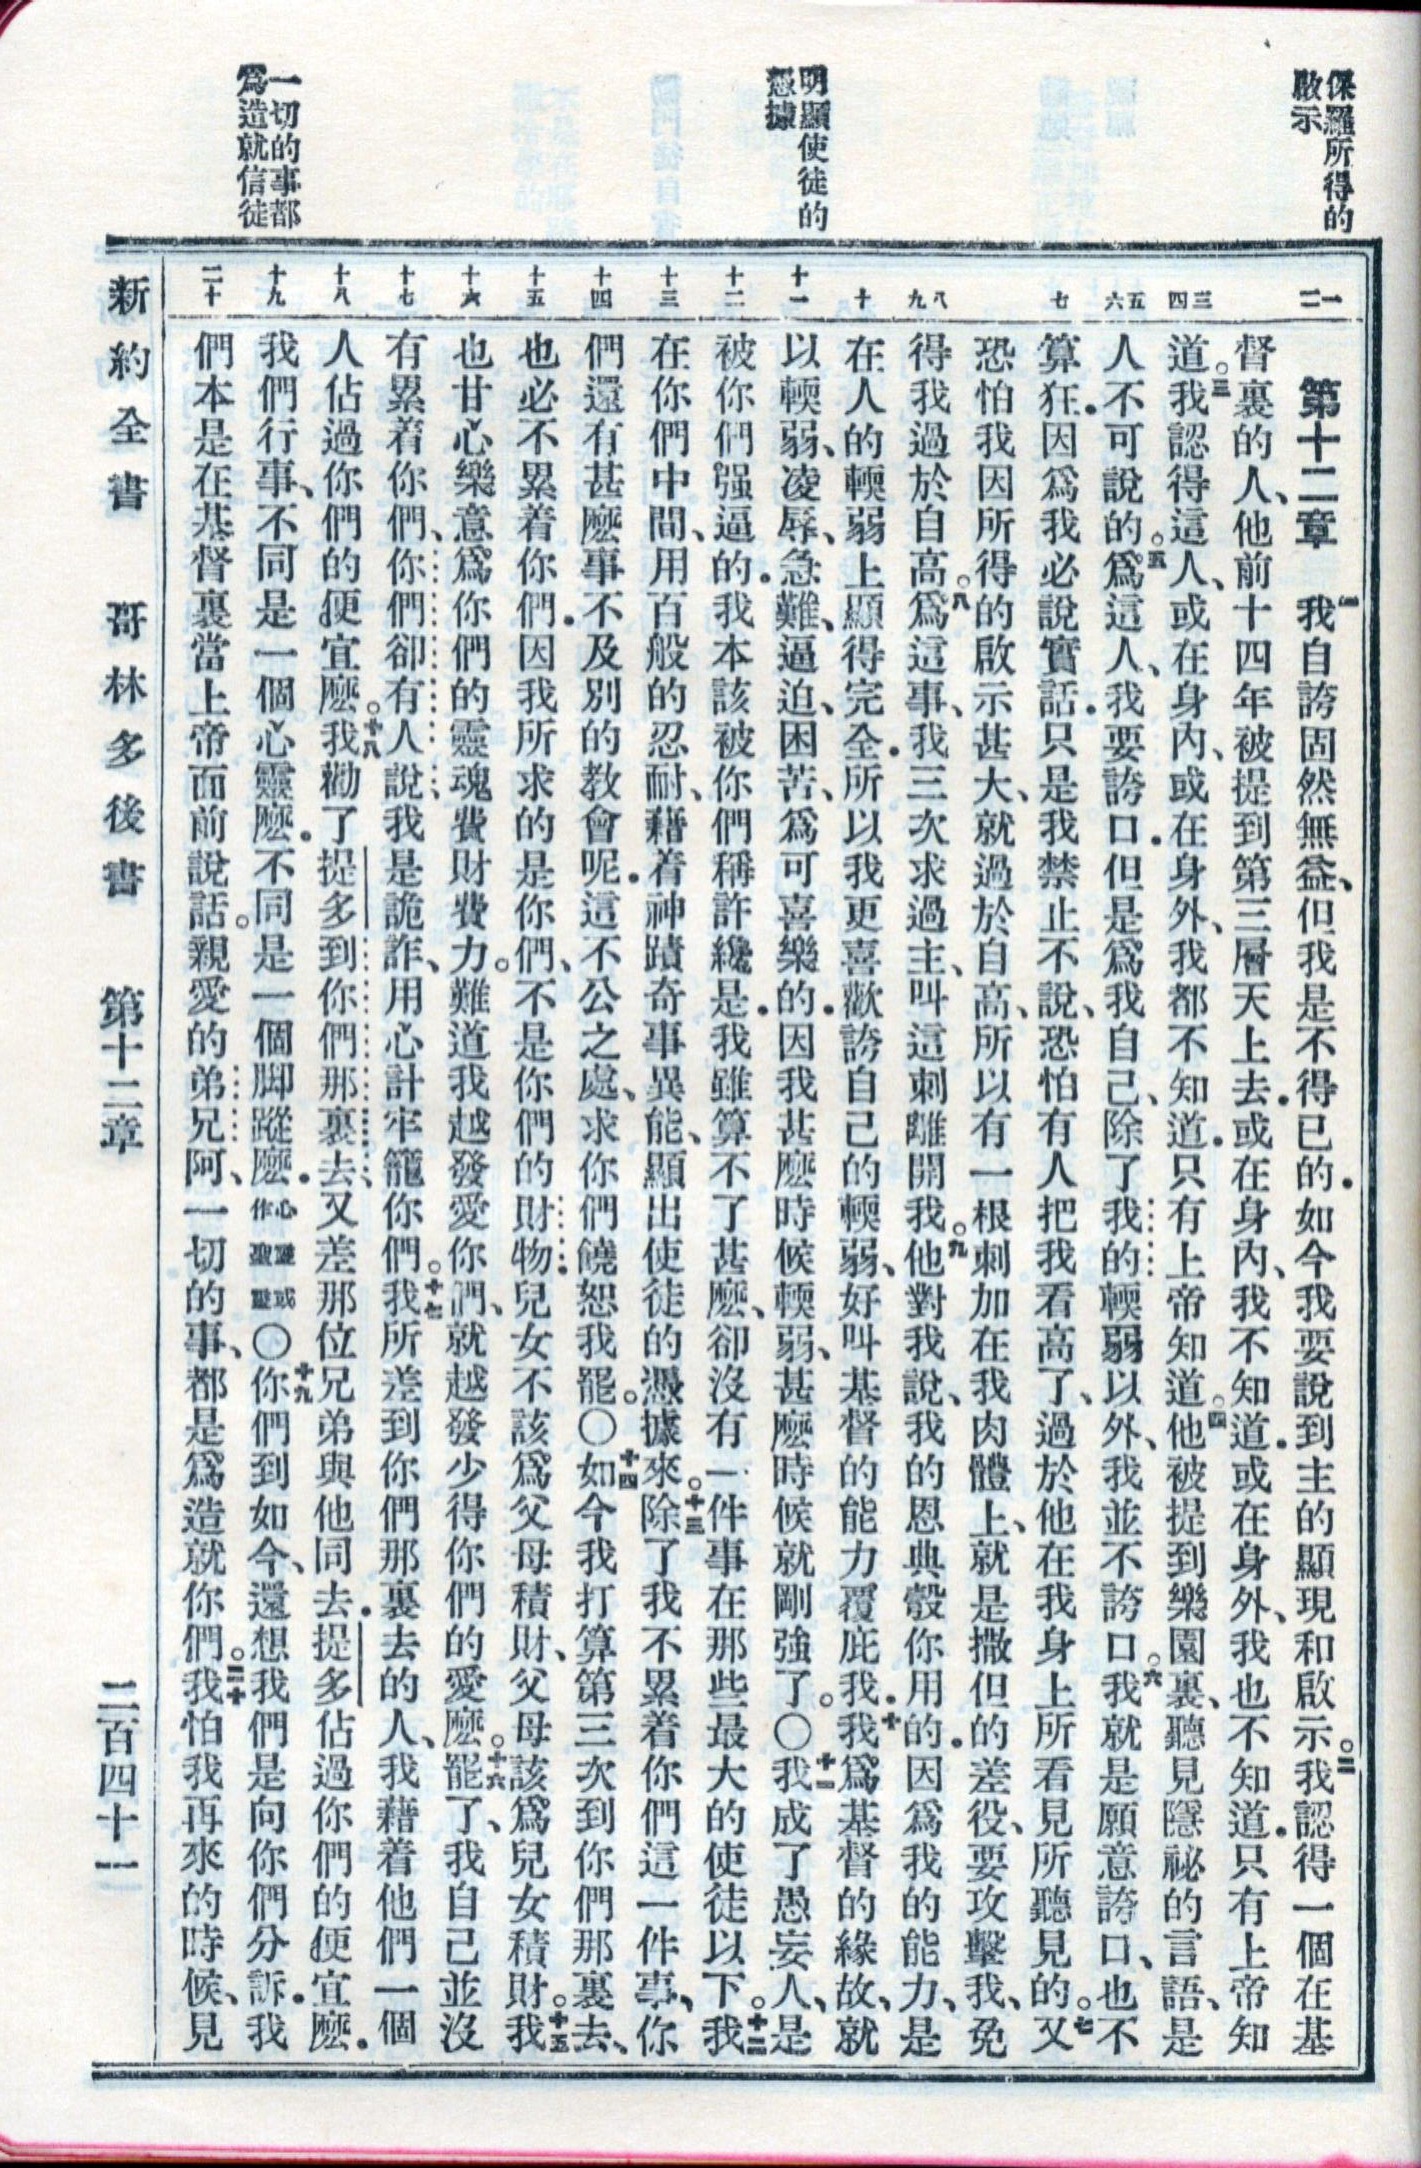 保羅所得的
啟示
明顯使徒的
憑據
一切的事都
爲造就信徒
一 二
三 四
五 六
七
八 九
十
十一
十二
十三
十四
十五
十六
十七
十八
十九
二十
第十二章 一我自誇固然無益、但我是不得已的.如今我要說到主的顯現和啟示。二我認得一個在基
督裏的人、他前十四年被提到第三層天上去.或在身內、我不知道.或在身外、我也不知道.只有上帝知
道。三我認得這人、或在身內、或在身外、我都不知道.只有上帝知道。四他被提到樂園裏、聽見隱祕的言語、是
人不可說的。五爲這人、我要誇口.但是爲我自己、除了我的輭弱以外、我並不誇口。六我就是願意誇口、也不
算狂.因爲我必說實話.只是我禁止不說、恐怕有人把我看高了、過於他在我身上所看見所聽見的。七又
恐怕我因所得的啟示甚大、就過於自高、所以有一根刺加在我肉體上、就是撒但的差役、要攻擊我、免
得我過於自高。八爲這事、我三次求過主、叫這刺離開我。九他對我說、我的恩典彀你用的.因爲我的能力、是
在人的輭弱上顯得完全.所以我更喜歡誇自己的輭弱、好叫基督的能力覆庇我.十我爲基督的緣故、就
以輭弱、凌辱、急難、逼迫、困苦、爲可喜樂的.因我甚麼時候輭弱、甚麼時候就剛強了。〇十一我成了愚妄人、是
被你們强逼的.我本該被你們稱許纔是.我雖算不了甚麼、卻沒有一件事在那些最大的使徒以下。十二我
在你們中間、用百般的忍耐、藉着神蹟奇事異能、顯出使徒的憑據來。十三除了我不累着你們這一件事、你
們還有甚麼事不及別的教會呢.這不公之處、求你們饒恕我罷。〇十四如今我打算第三次到你們那裏去、
也必不累着你們.因我所求的是你們、不是你們的財物.兒女不該爲父母積財、父母該爲兒女積財。十五我
也甘心樂意爲你們的靈魂費財費力。難道我越發愛你們、就越發少得你們的愛麼。十六罷了、我自己並沒
有累着你們、你們卻有人說我是詭詐、用心計牢籠你們。十七我所差到你們那裏去的人、我藉着他們一個
人佔過你們的便宜麼。十八我勸了提多到你們那裏去、又差那位兄弟與他同去.提多佔過你們的便宜麼.
我們行事、不同是一個心靈麼.不同是一個脚蹤麼.心靈或作聖靈〇十九你們到如今、還想我們是向你們分訴.我
們本是在基督裏當上帝面前說話。親愛的弟兄阿、一切的事、都是爲造就你們。二十我怕我再來的時候、見
新約全書 哥林多後書 第十二章 二百四十一